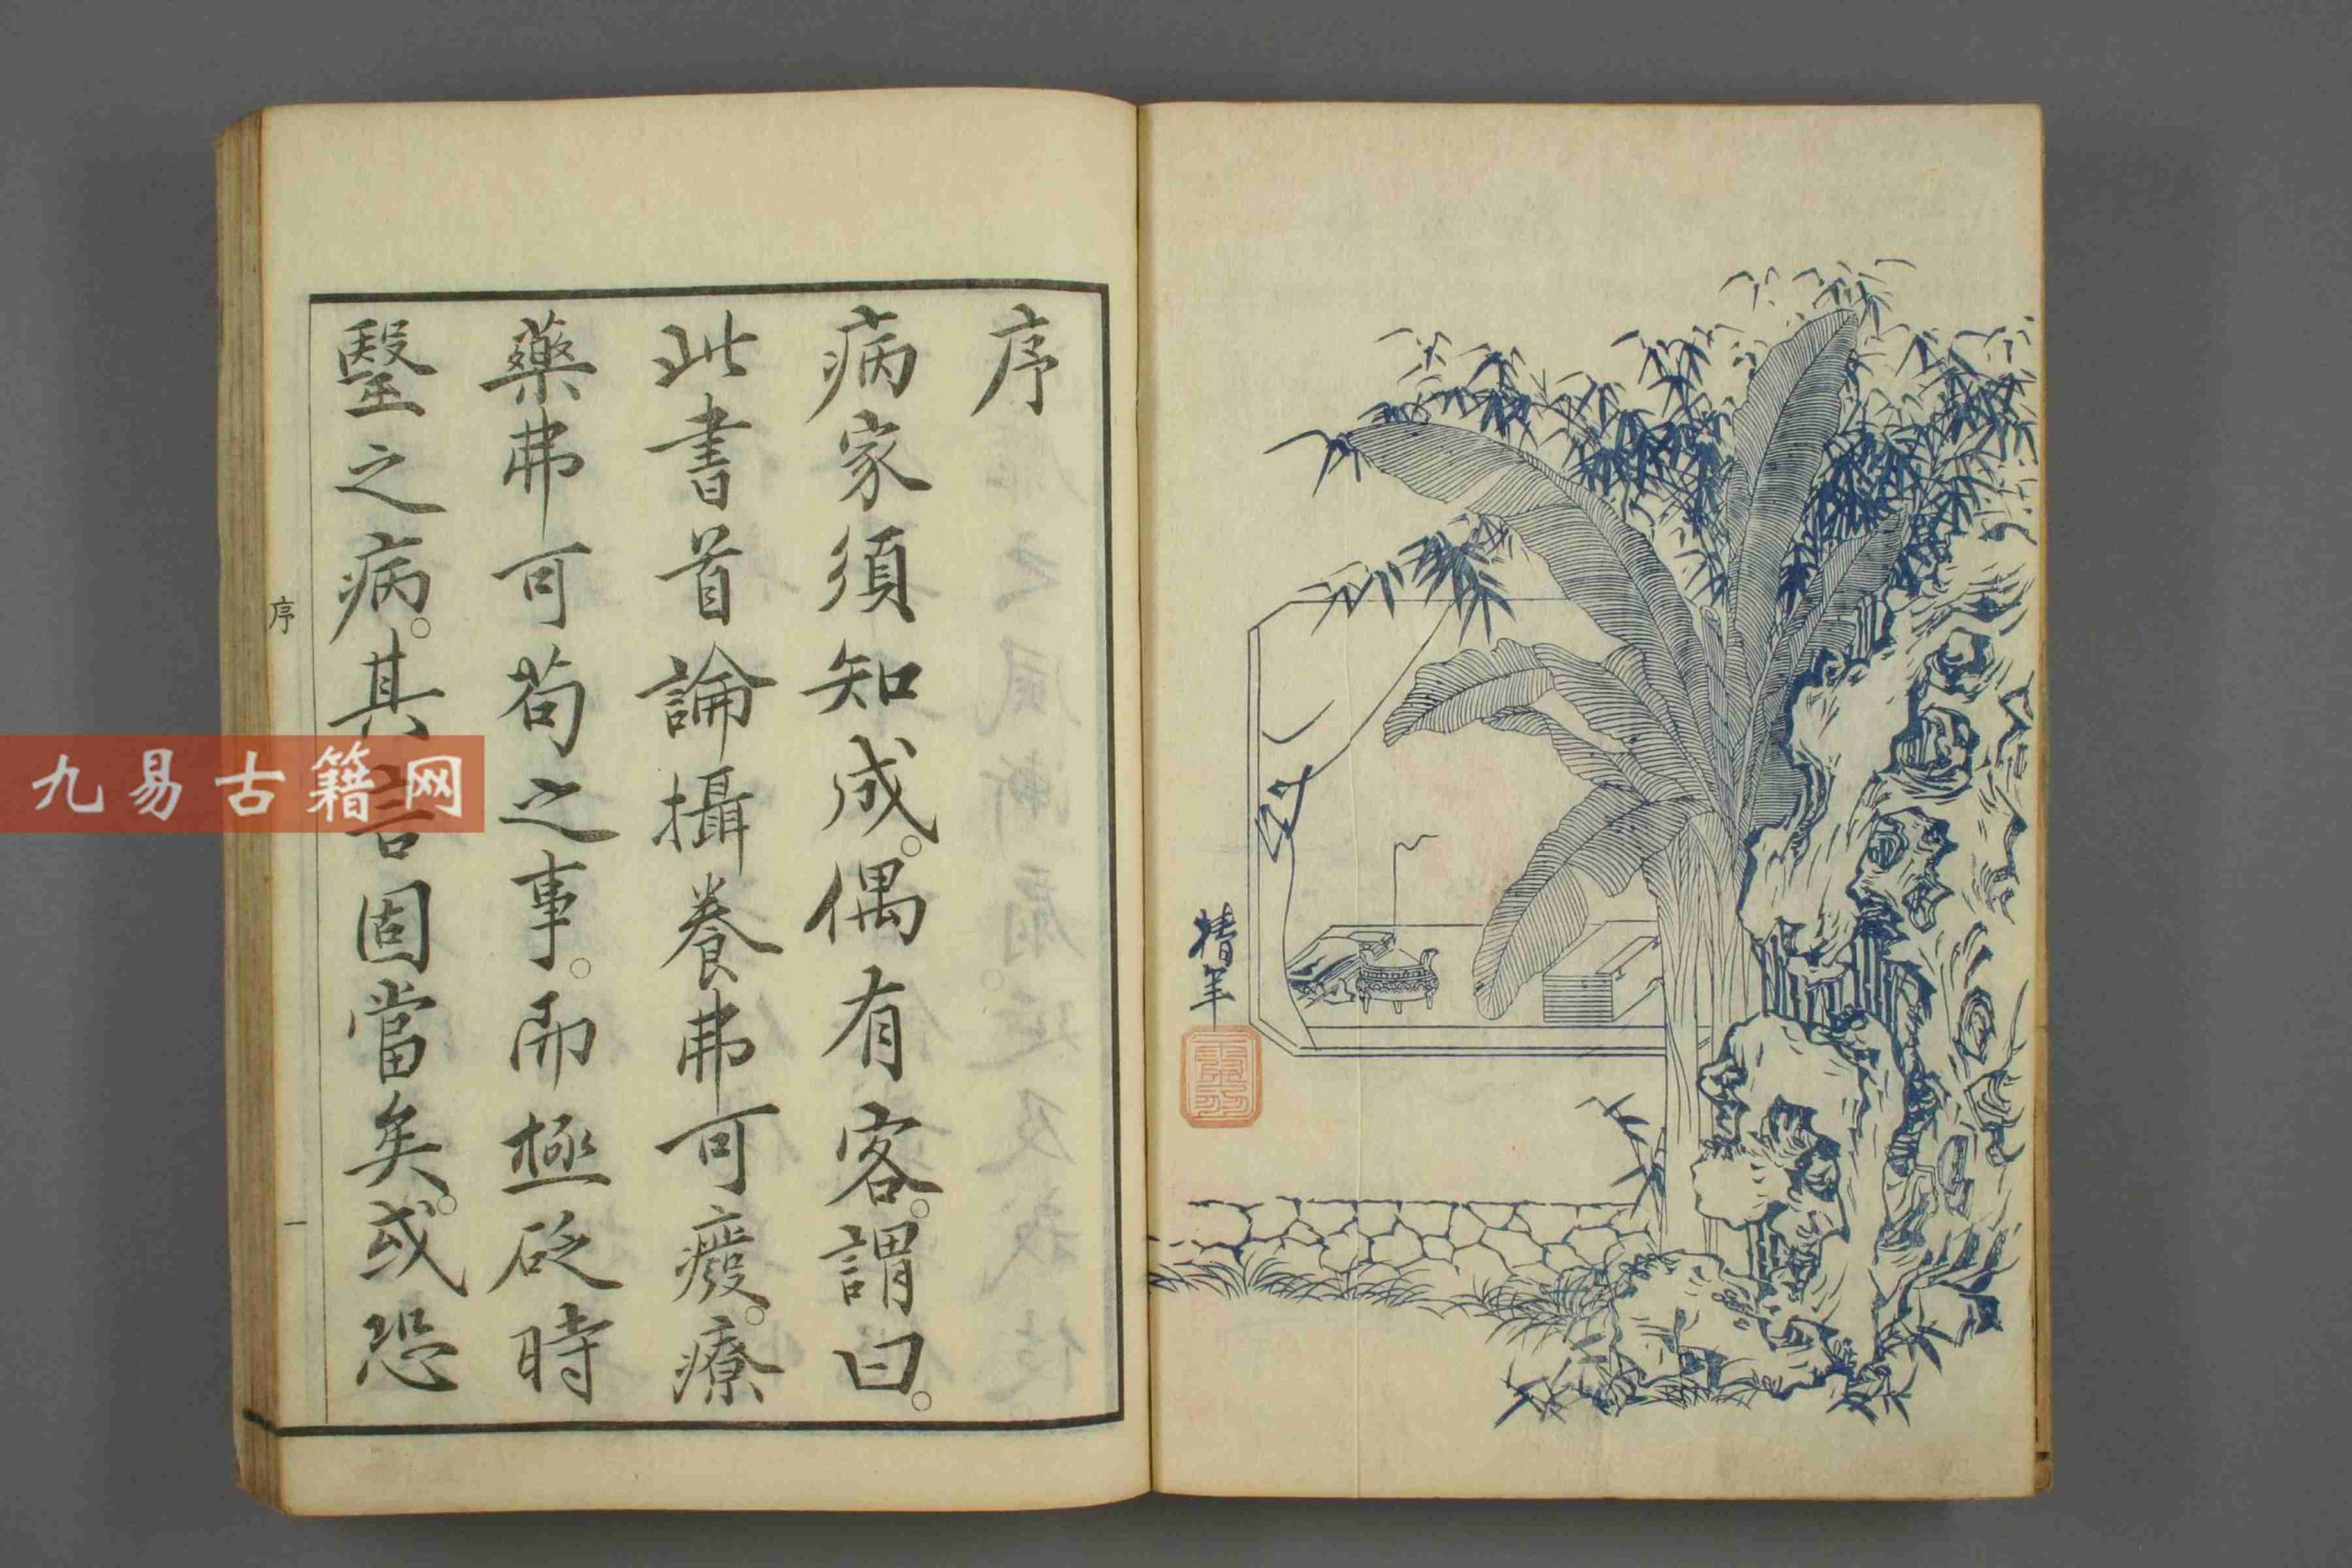 序
病家須知成。偶有客。謂曰。
此書首論攝養弗可癈。療
藥弗可苟之事。而極砭時
毉之病。其言固當矣。或恐
序
一
九易古籍网